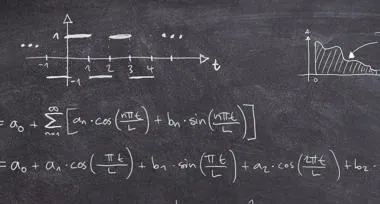 1
... ...
-1 1 2 3 4 t
-1
A
0
= a₀ + ∞∑n=1 [aₙ · cos(nπt/L) + bₙ · sin(nπt/L)]
= a₀ + a₁ · cos(πt/L) + b₁ · sin(πt/L) + a₂ · cos(2πt/L) + b₂ ·